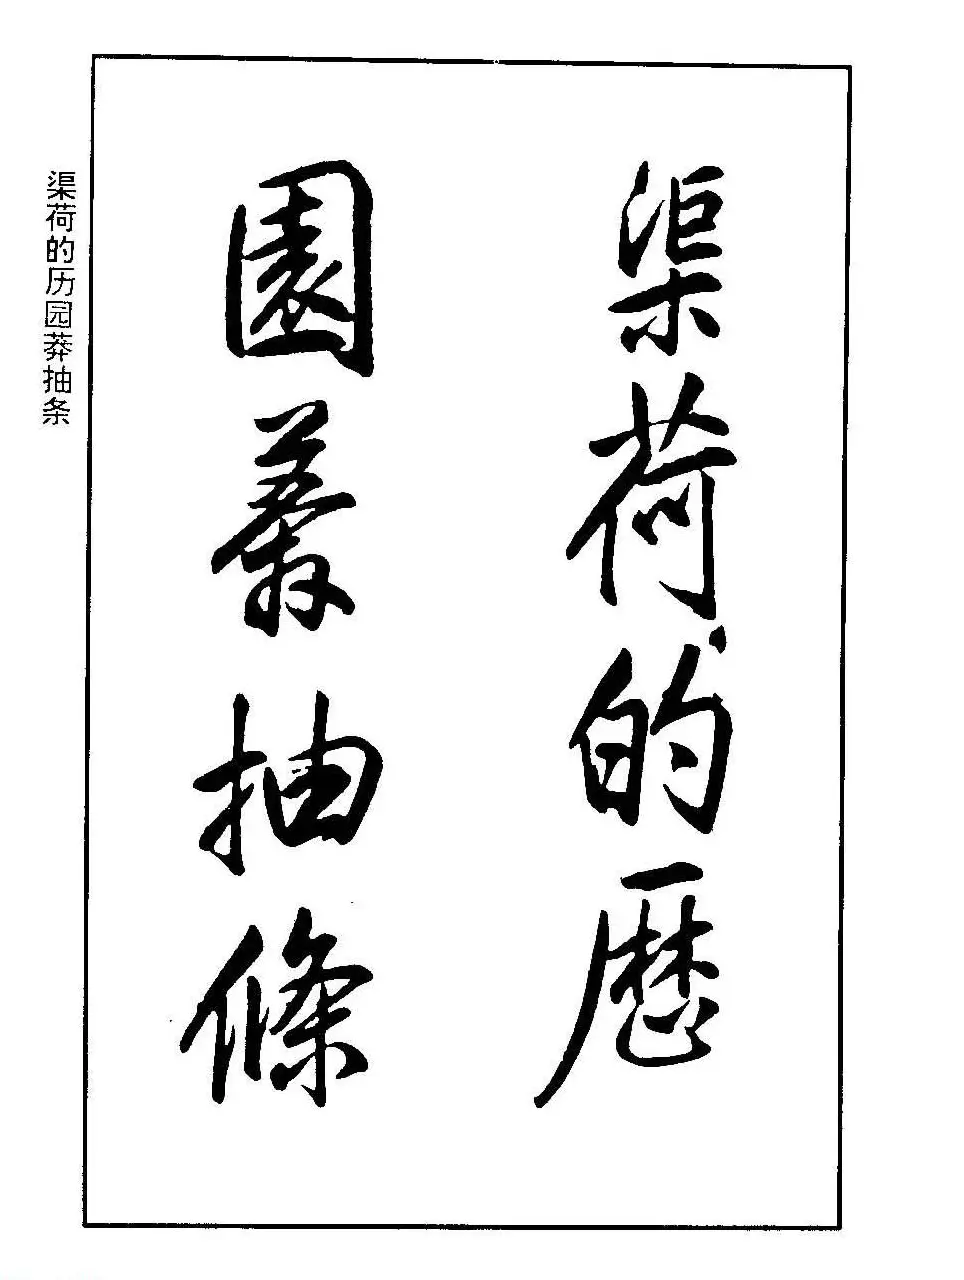 渠荷的歷
園莽抽條
渠荷的历园莽抽条